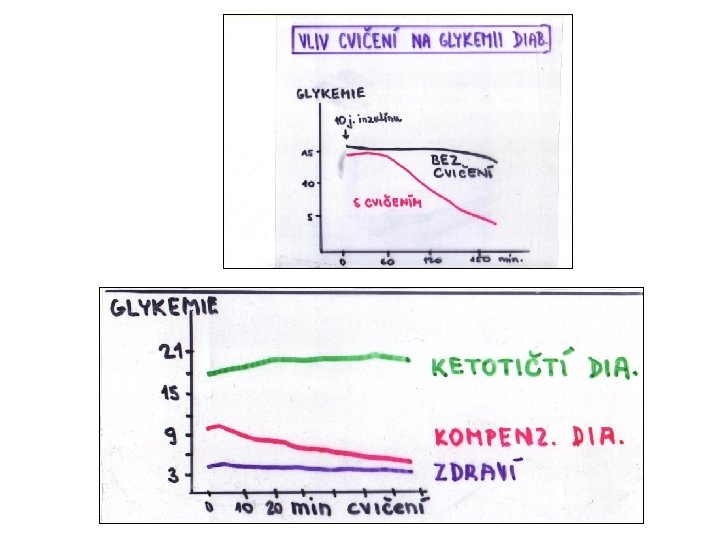 VLIV CVIČENÍ NA GLYKEMII DIAB.
GLYKEMIE
10 j. inzulínu
15
BEZ
CVIČENÍ
10
S CVIČENÍM
5
0 60 120 180 min.
GLYKEMIE
21
KETOTIČTÍ DIA.
15
9
KOMPENZ. DIA.
3
ZDRAVÍ
0 10 20 min cvičení